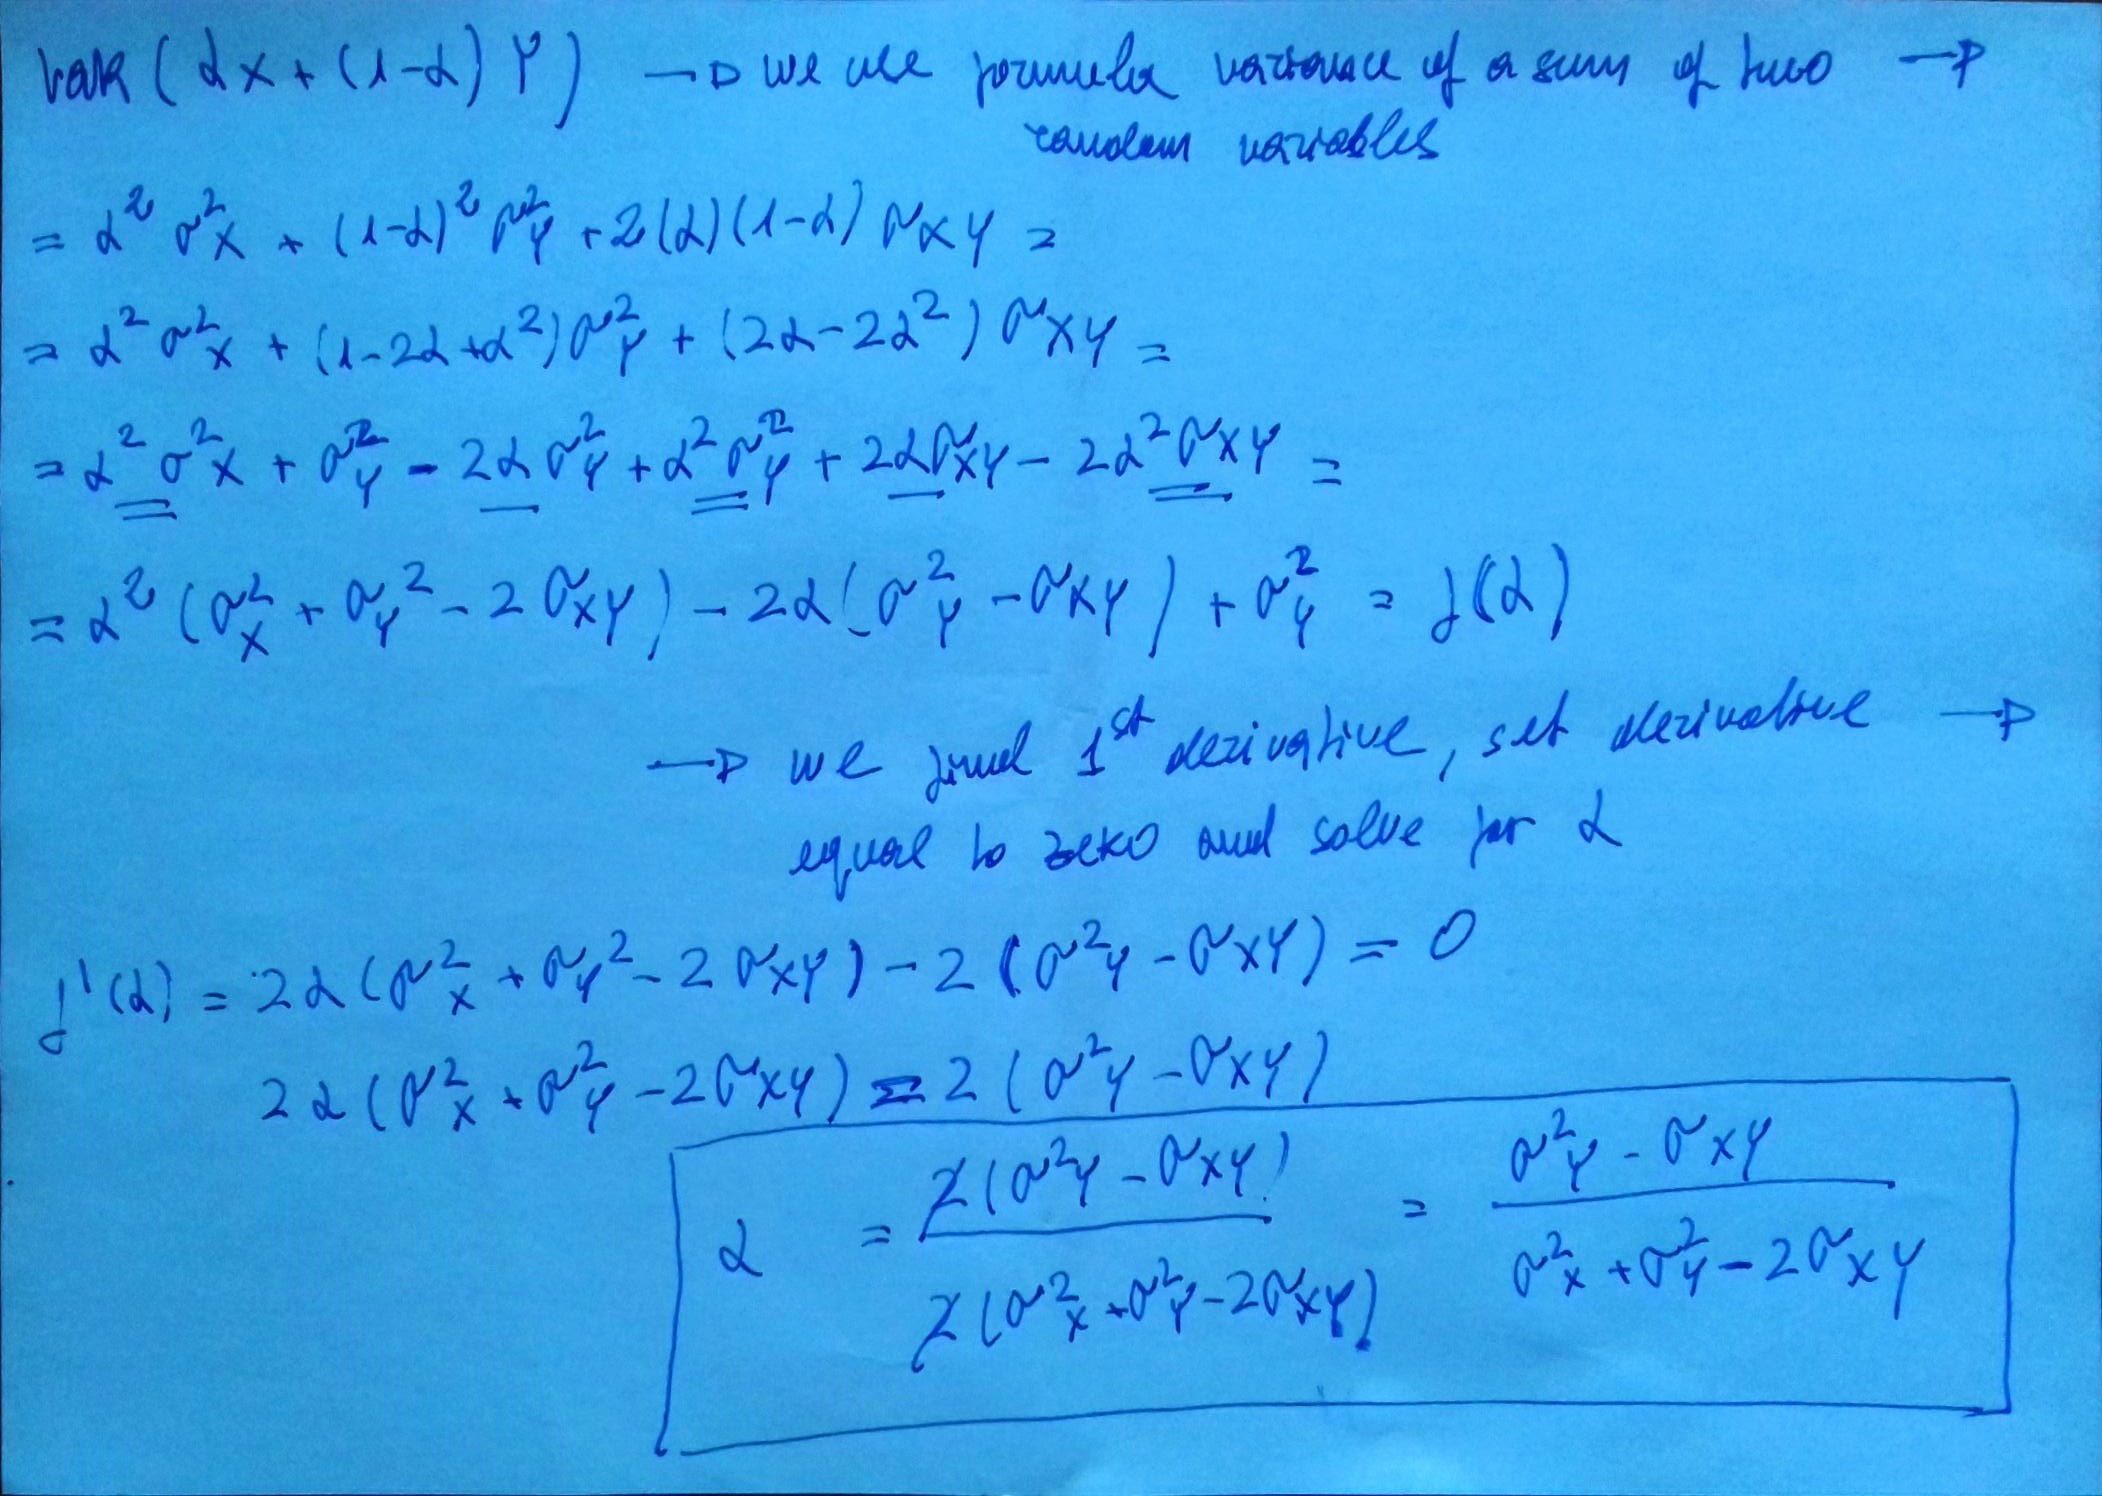 Var ( αX + (1-α) Y ) → we use formula variance of a sum of two →
random variables
= α² σ²X + (1-α)² σ²Y + 2(α)(1-α) σXY =
= α² σ²X + (1-2α+α²) σ²Y + (2α-2α²) σXY =
= α² σ²X + σ²Y - 2α σ²Y + α² σ²Y + 2α σXY - 2α² σXY =
= α² (σ²X + σY² - 2 σXY) - 2α (σ²Y - σXY) + σ²Y = f(α)
→ we find 1st derivative, set derivative →
equal to zero and solve for α
f'(α) = 2α (σ²X + σY² - 2 σXY) - 2 (σ²Y - σXY) = 0
2α (σ²X + σ²Y - 2σXY) = 2 (σ²Y - σXY)
α = 2(σ²Y - σXY) / 2(σ²X + σ²Y - 2σXY) = σ²Y - σXY / σ²X + σ²Y - 2σXY